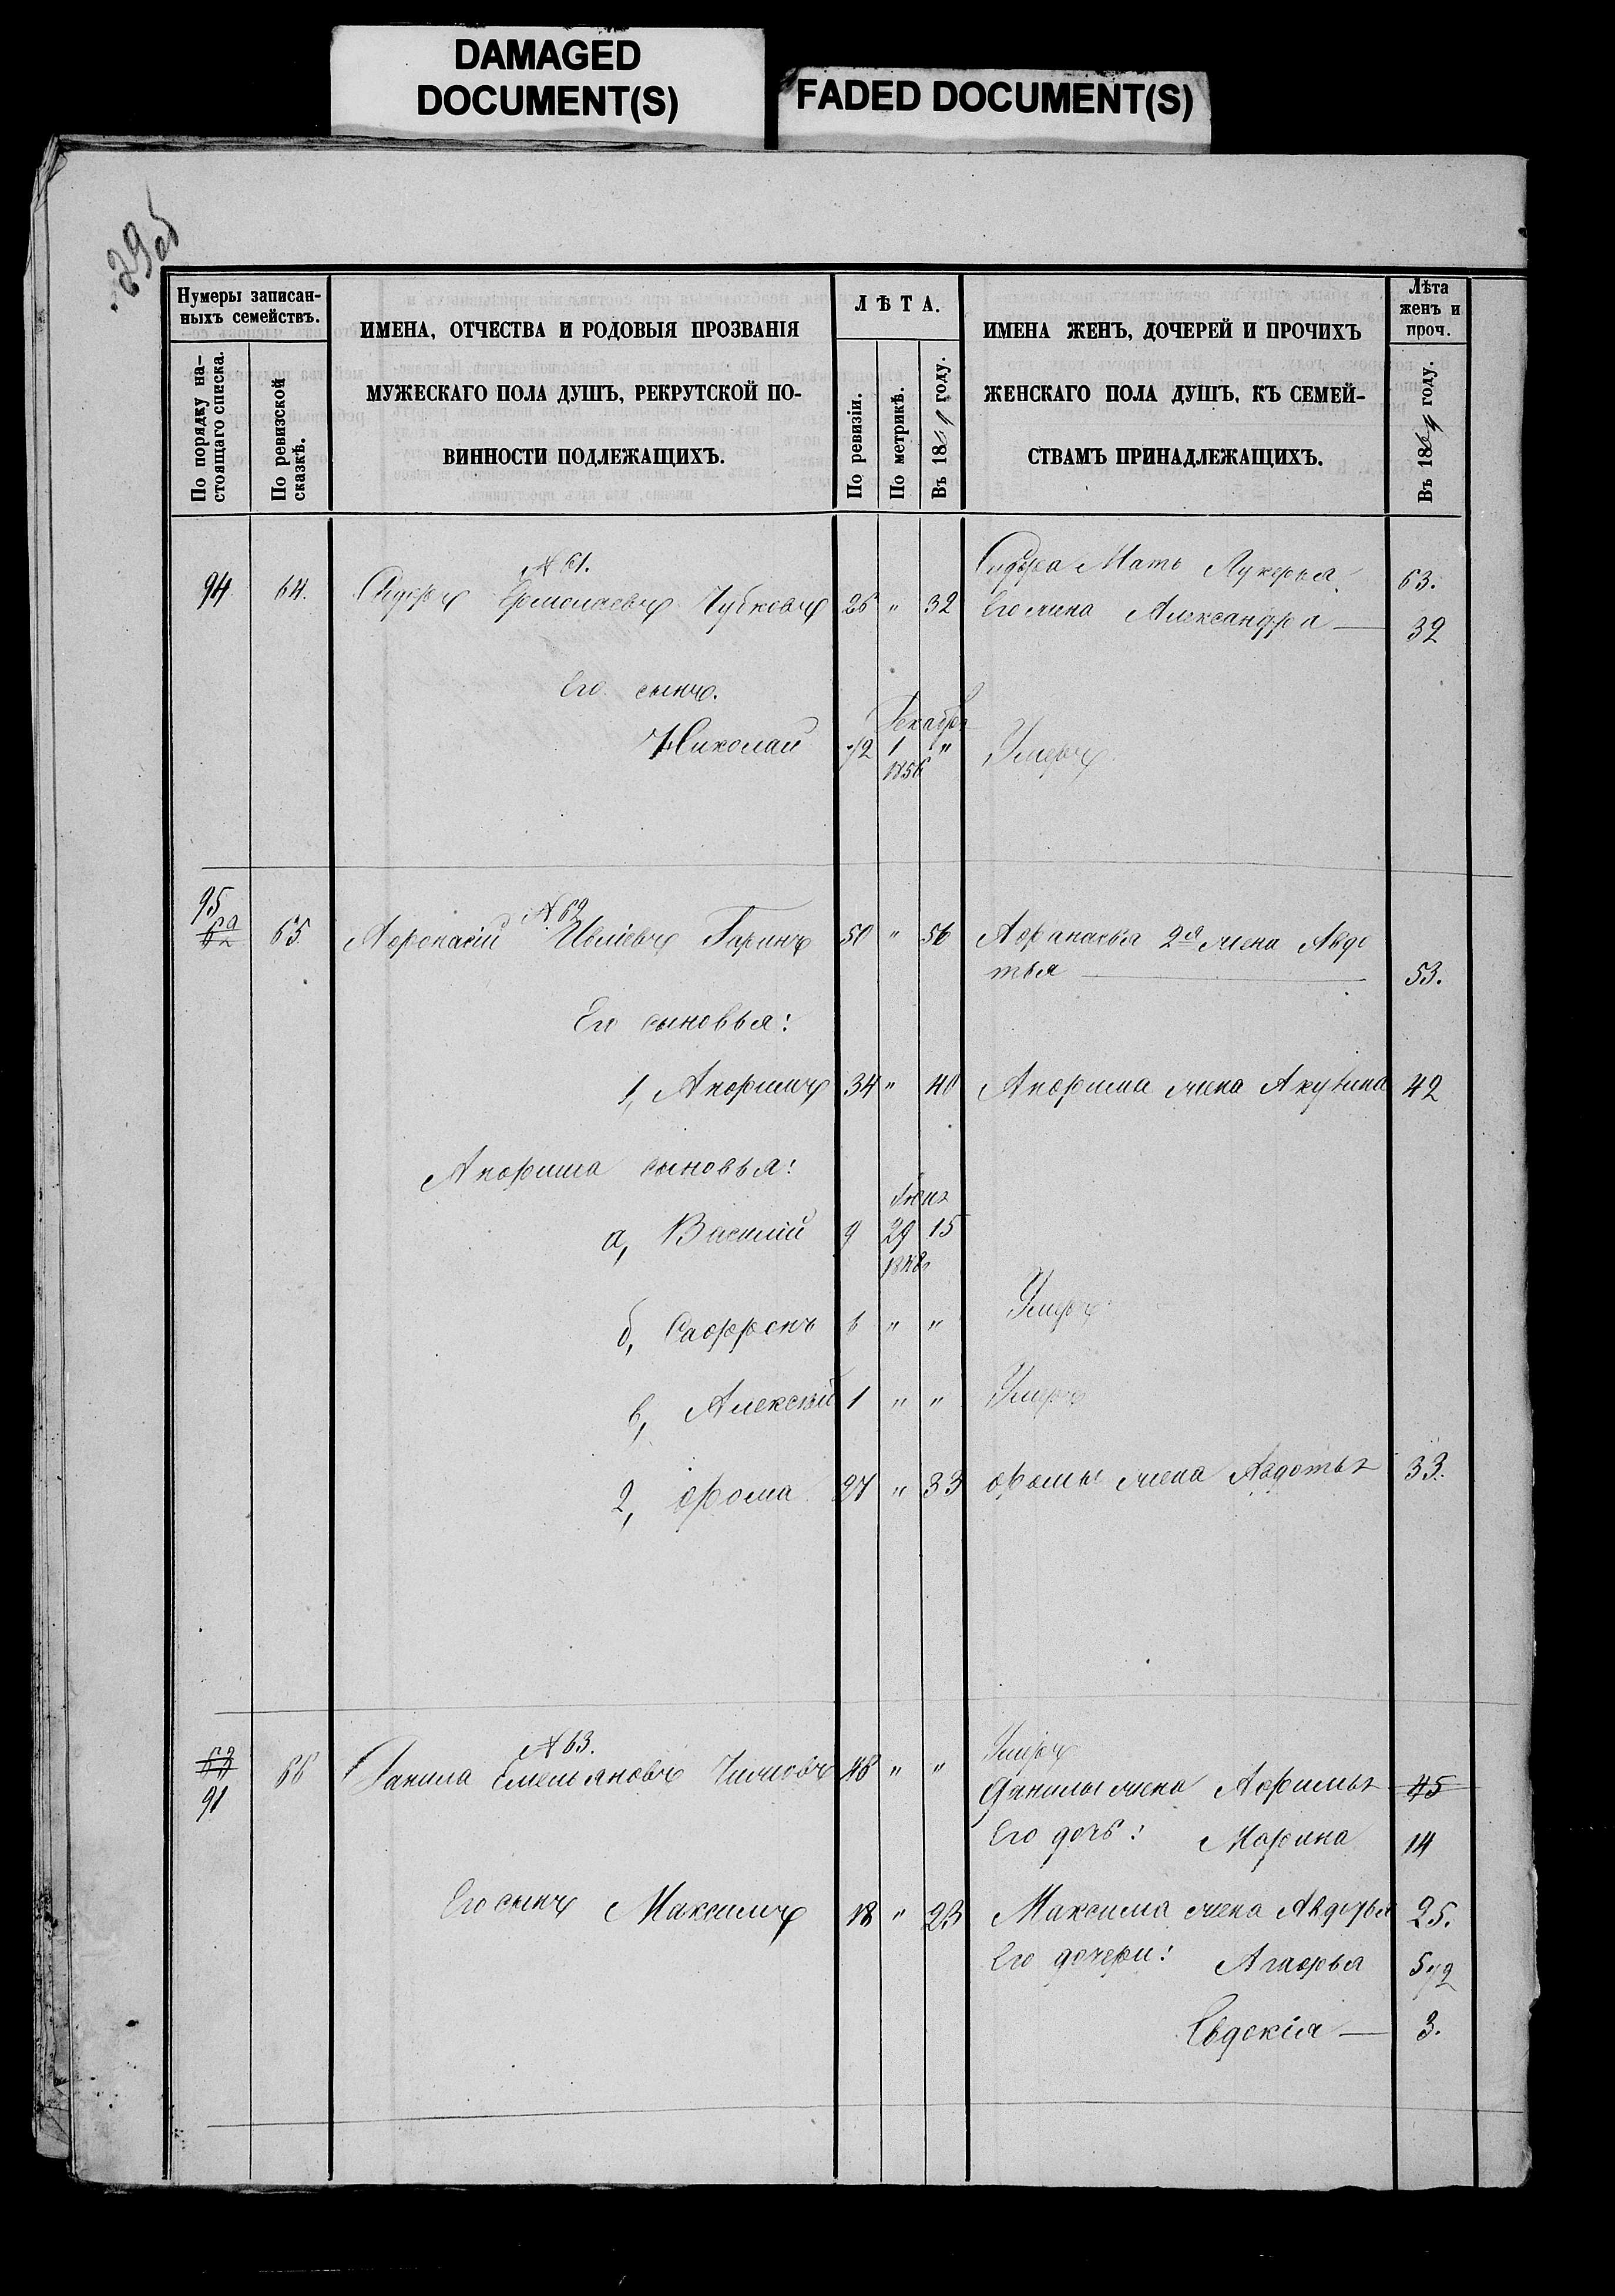 DAMAGED
DOCUMENT(S)
FADED DOCUMENT(S)
29об
Нумеры записан-
ныхъ семействъ.
По порядку на-
стоящаго списка.
По ревизской
сказкѣ.
ИМЕНА, ОТЧЕСТВА И РОДОВЫЯ ПРОЗВАНІЯ
МУЖЕСКАГО ПОЛА ДУШЪ, РЕКРУТСКОЙ ПО-
ВИННОСТИ ПОДЛЕЖАЩИХЪ.
ЛѢТА.
По ревизіи.
По метрикѣ.
Въ 1864 году.
ИМЕНА ЖЕНЪ, ДОЧЕРЕЙ И ПРОЧИХЪ
ЖЕНСКАГО ПОЛА ДУШЪ, КЪ СЕМЕЙ-
СТВАМЪ ПРИНАДЛЕЖАЩИХЪ.
Лѣта
женъ и
проч.
Въ 1864 году.
№ 61.
Сидора Мать Лукерья 63.
94 64. Сидоръ Ермолаевъ 26 " 32 Его жена Александра — 32
Его сынъ.
Декабря
Николай 1/2 1 " Умеръ
1856
95
62 65 № 62
Афонасій Ивліевъ Гаринъ 50 " 56 Афанасья 2я жена Авдо
тья — 53.
Его сыновья:
1, Анфимъ 34 " 40 Анфима жена Акулина 42
Анфима сыновья:
а, Василій 9 29 15
1848
б, Сафронъ 6 " " Умеръ
в, Алексѣй 1 " " Умеръ
2, Фома 27 " 33 Фомы жена Авдотья 33.
№ 63.
Умеръ
63 66 Данила Емельяновъ 48 " " Данилы жена Афимья 45
91
Его дочь: Марина 14
Его сынъ Максимъ 18 " 23 Максима жена Авдотья 25.
Его дочери: Агафья 5 1/2
Евдокія — 3.